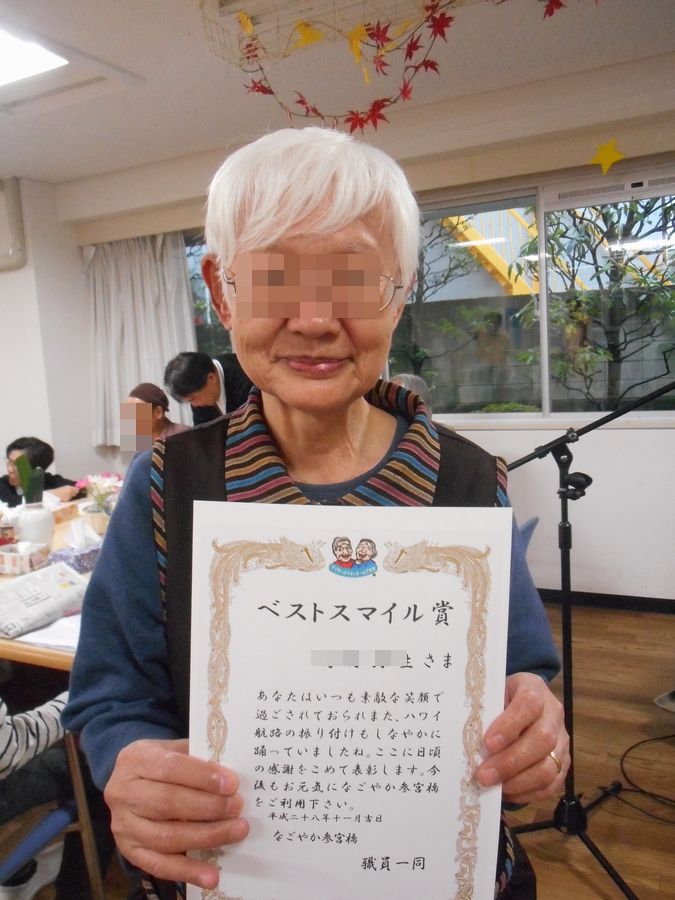 ベストスマイル賞
さま
あなたはいつも素敵な笑顔で
過ごされておられまた、ハワイ
航路の振り付けもしなやかに
踊っていましたね。ここに日頃
の感謝をこめて表彰します。今
後もお元気になごやか参宮橋
をご利用下さい。
平成二十八年十一月吉日
なごやか参宮橋
職員一同